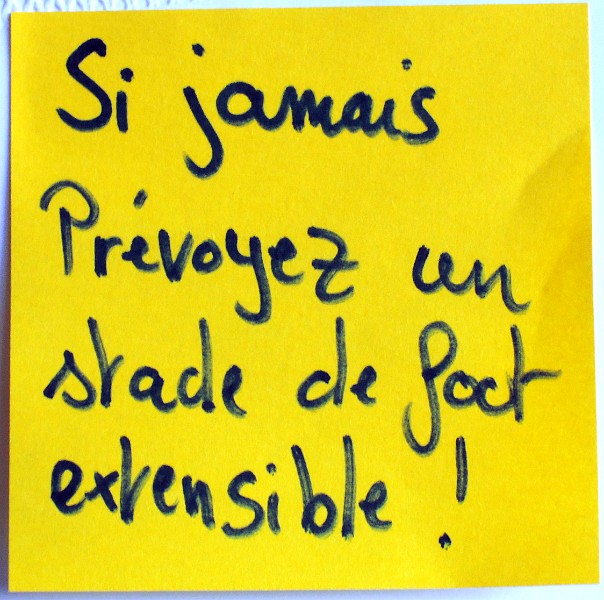 Si jamais
Prévoyez un
stade de foot
extensible !